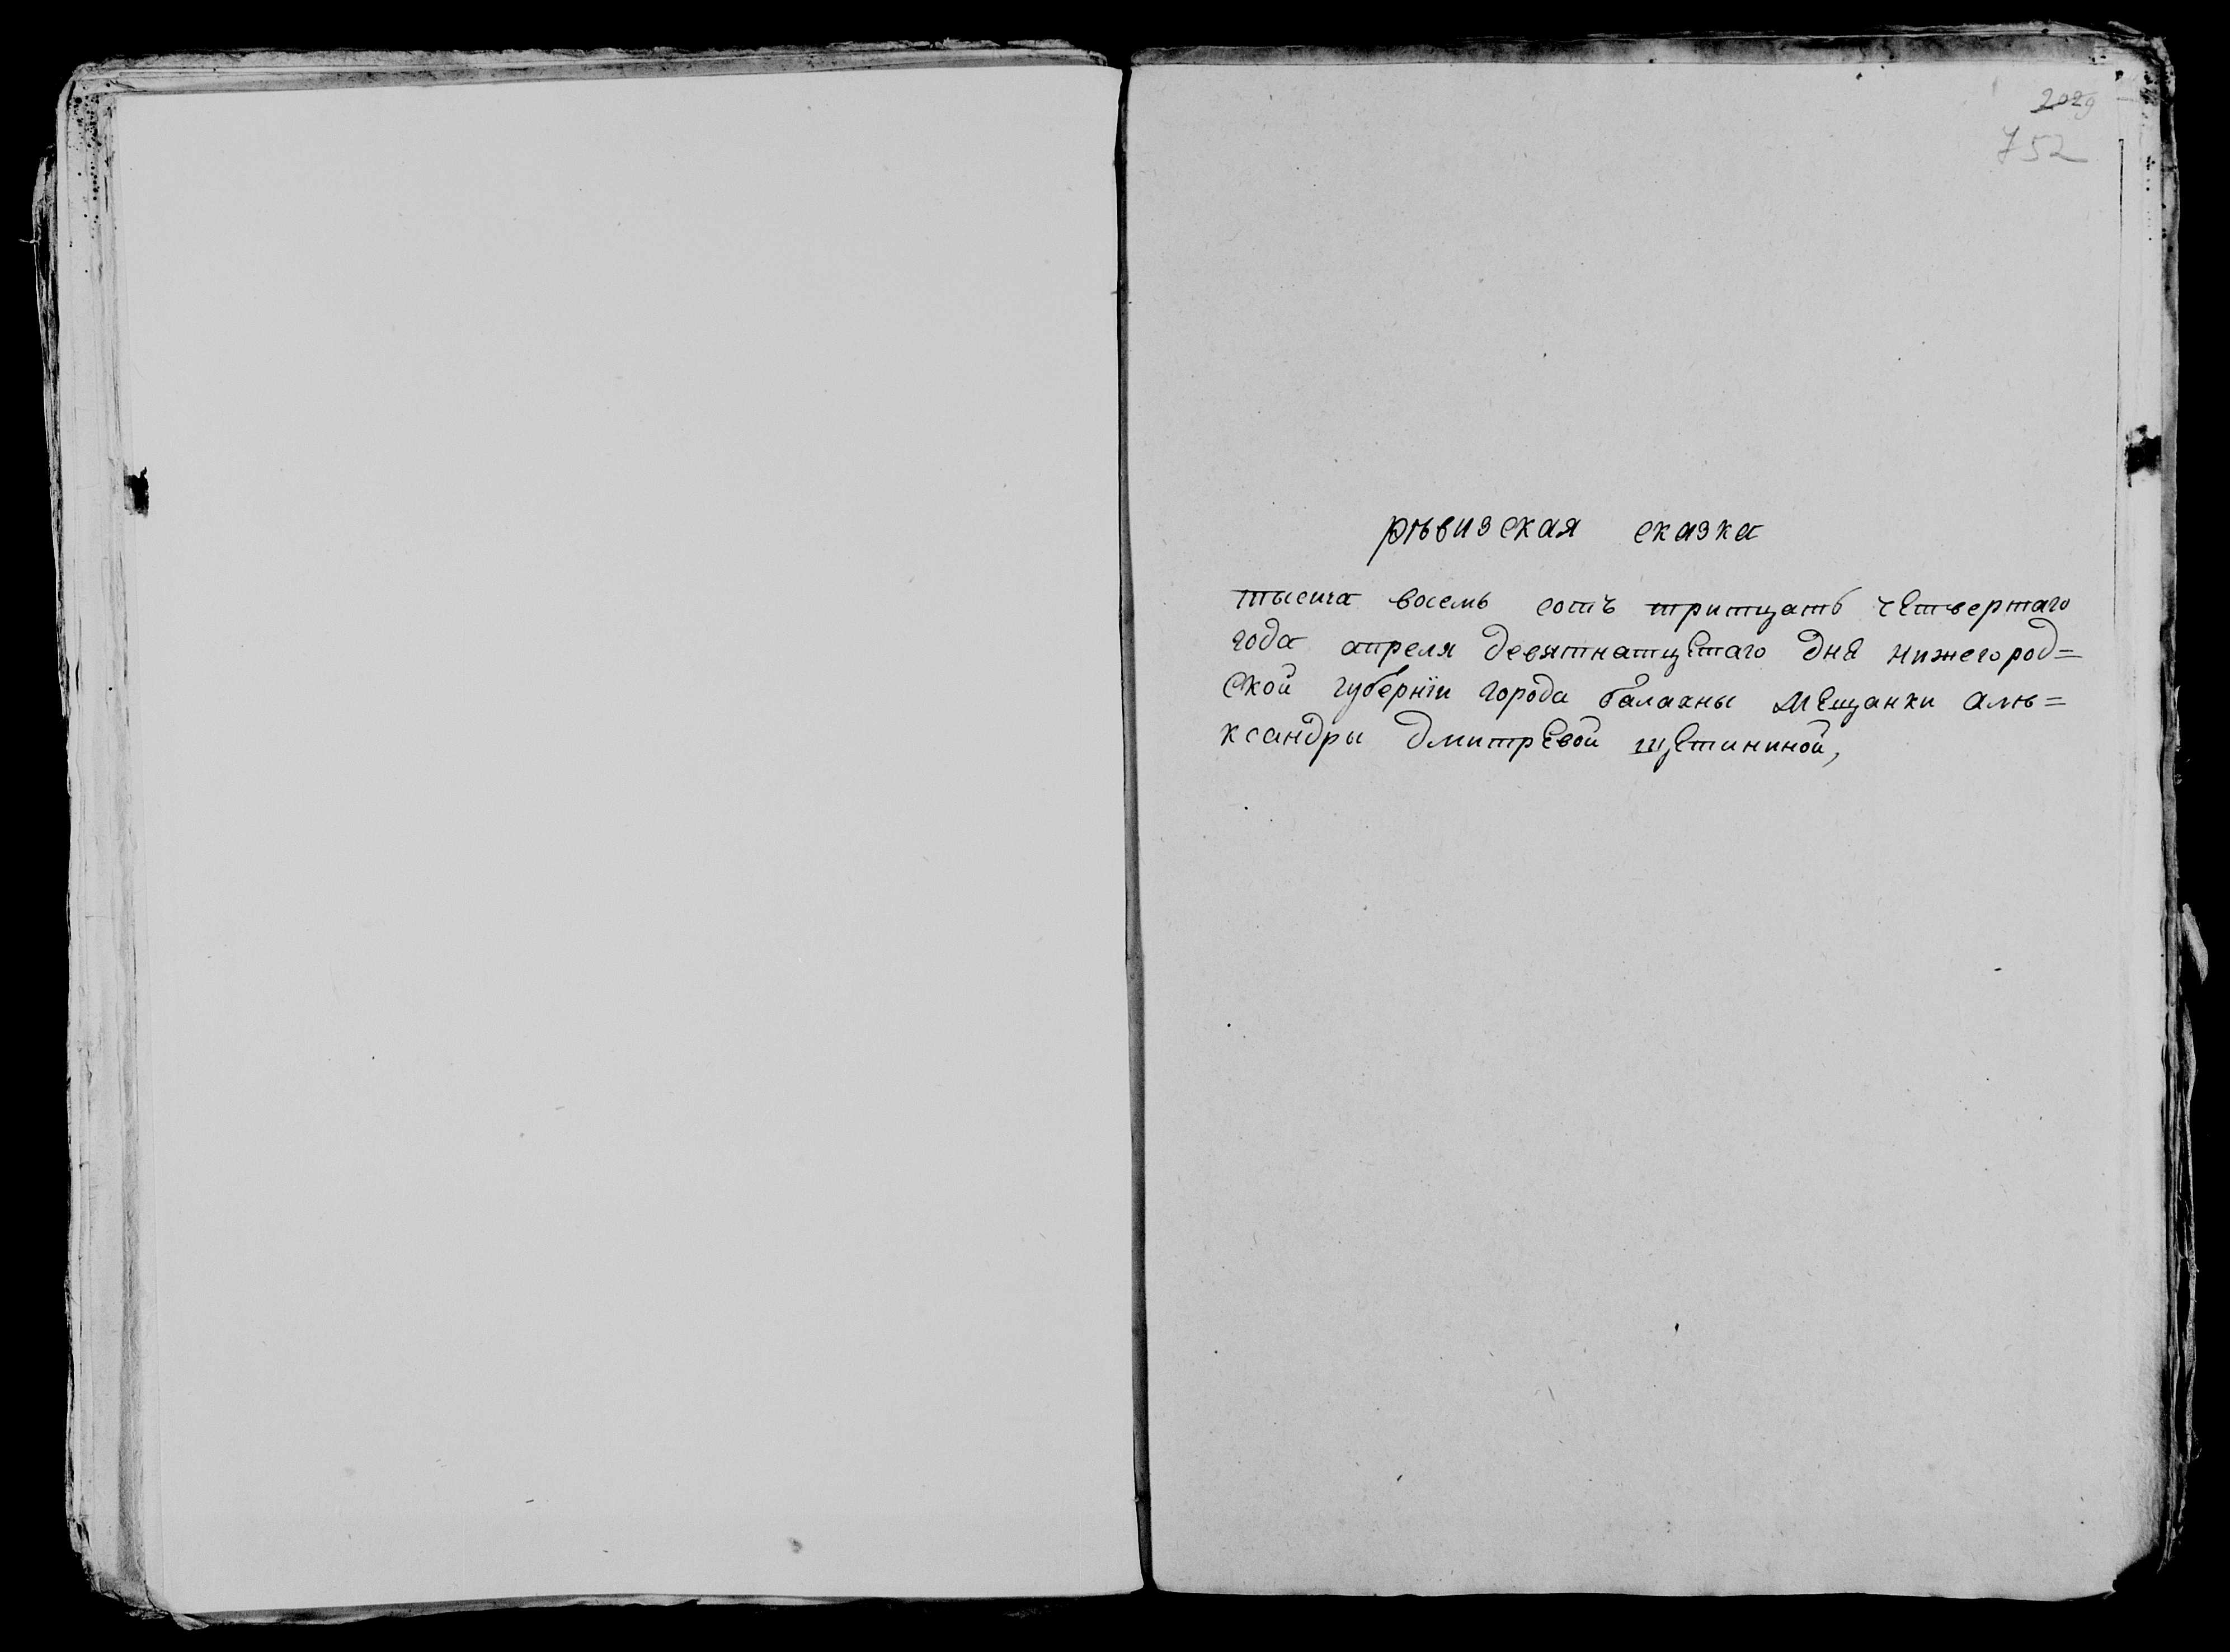 2029
752
рѣвизская сказка
тысяча восемь сотъ тритцать четвертаго
года апреля девятнатцетаго дня нижегород=
ской губернїи города балахны мещанки алѣ=
ксандры дмитревой щетининой,